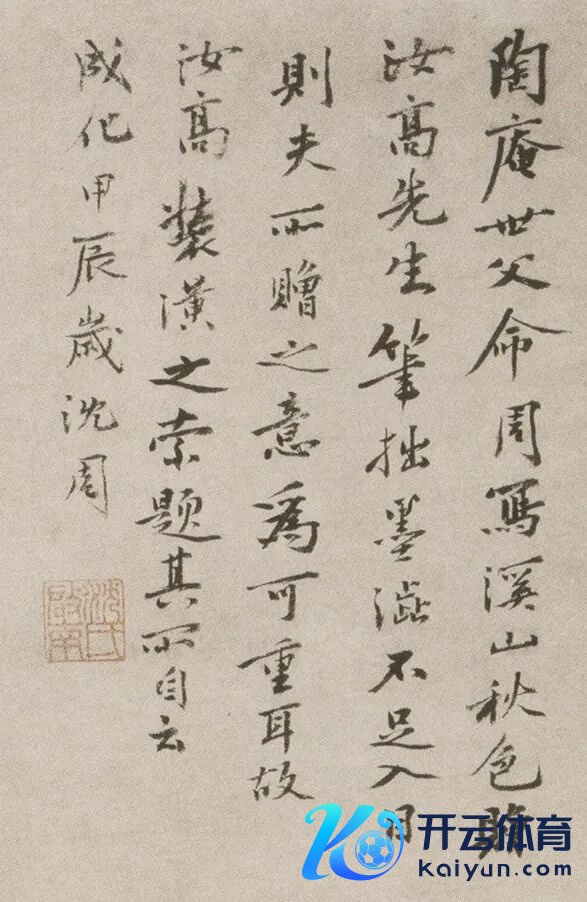 陶庵世父命周寫溪山秋色贈
汝高先生筆拙墨澁不足入目
則夫所贈之意為可重耳故
汝高裝潢之索題其所自云
成化甲辰歲沈周
沈氏啟南
开云体育
kaiyun.com